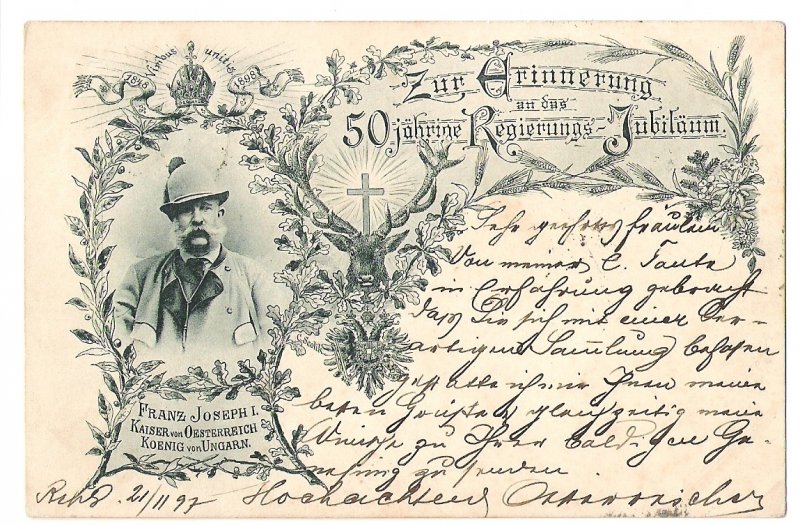 1848 Viribus unitis 1898
Zur Erinnerung
an das
50 jährige Regierungs-Jubiläum.
FRANZ JOSEPH I.
KAISER VON OESTERREICH
KOENIG VON UNGARN.
Sehr geehrtes Fräulein
Von meiner l. Tante
in Erfahrung gebracht
daß Sie sich mit einer der-
artigen Sammlung befassen
gestatte ich mir Ihnen meine
besten Grüße gleichzeitig meine
Wünsche zu Ihrer baldigen Ge-
nesung zu senden
21/11 97 Hochachtend